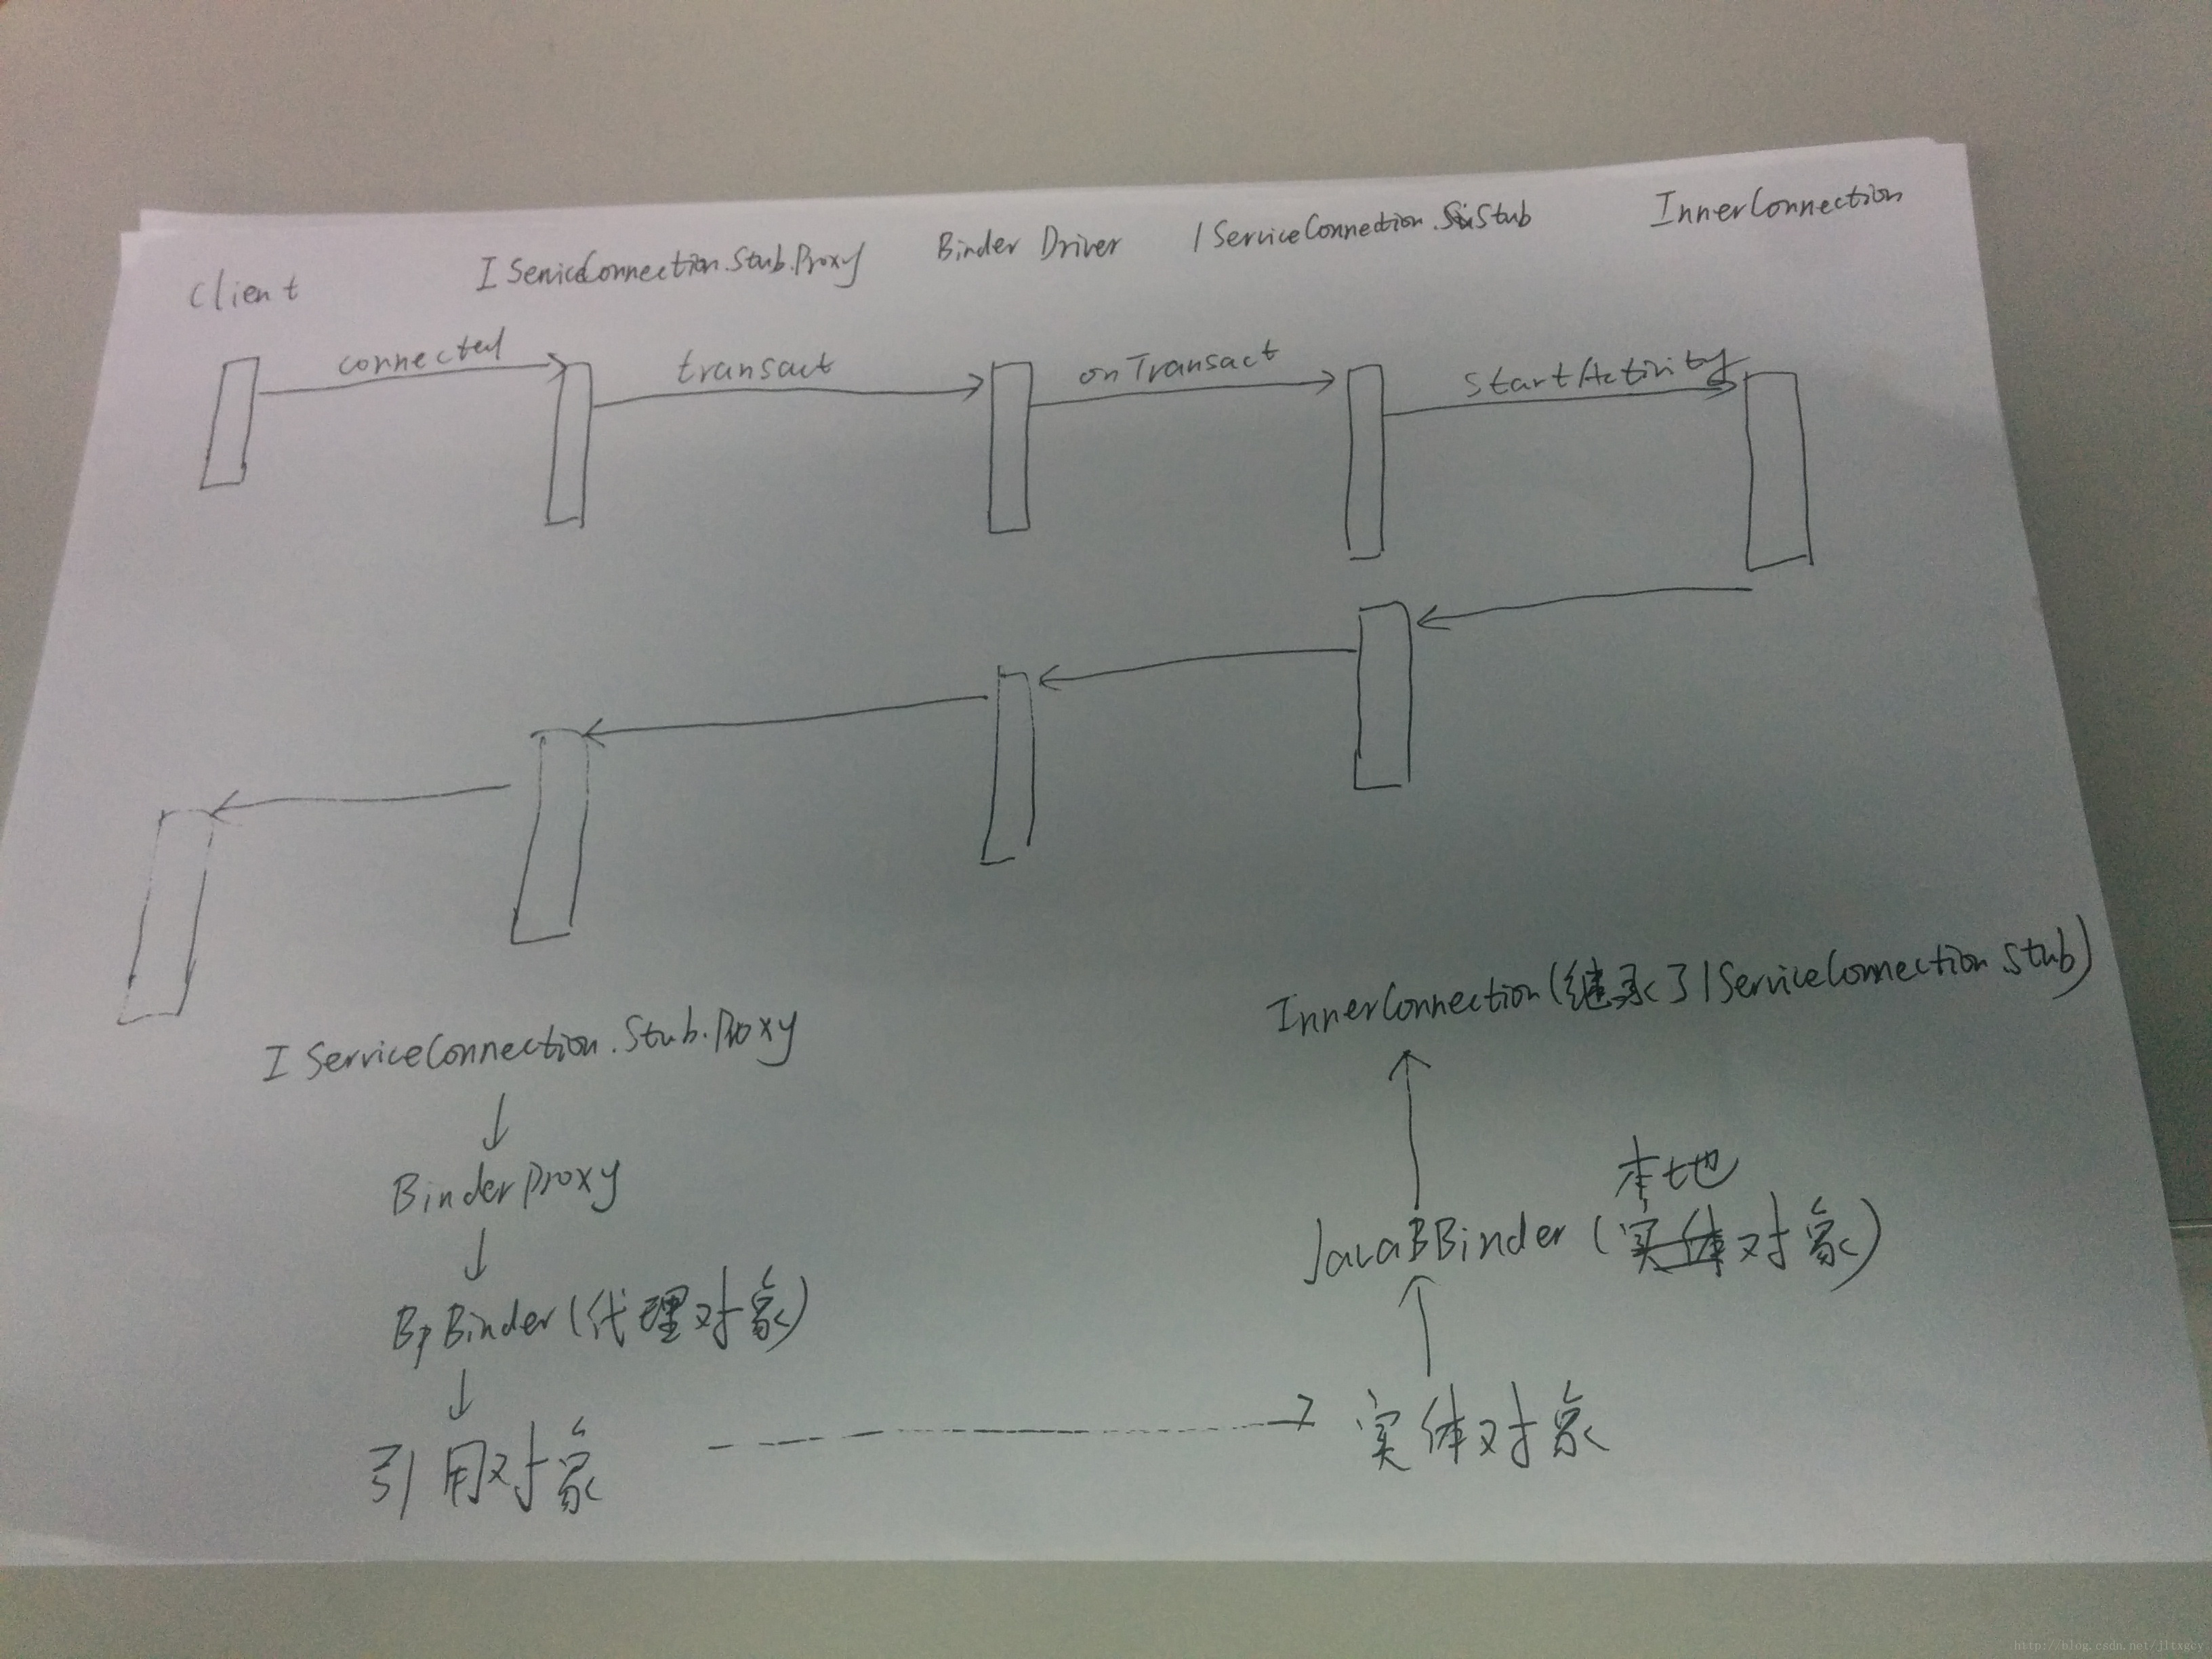 Client
IServiceConnection.Stub.Proxy
Binder Driver
IServiceConnection.Stub
InnerConnection
connected
transact
onTransact
startActivity
IServiceConnection.Stub.Proxy
InnerConnection(继承了IServiceConnection.Stub)
BinderProxy
本地
JavaBBinder(实体对象)
BpBinder(代理对象)
引用对象
实体对象
http://blog.csdn.net/jltxgcy